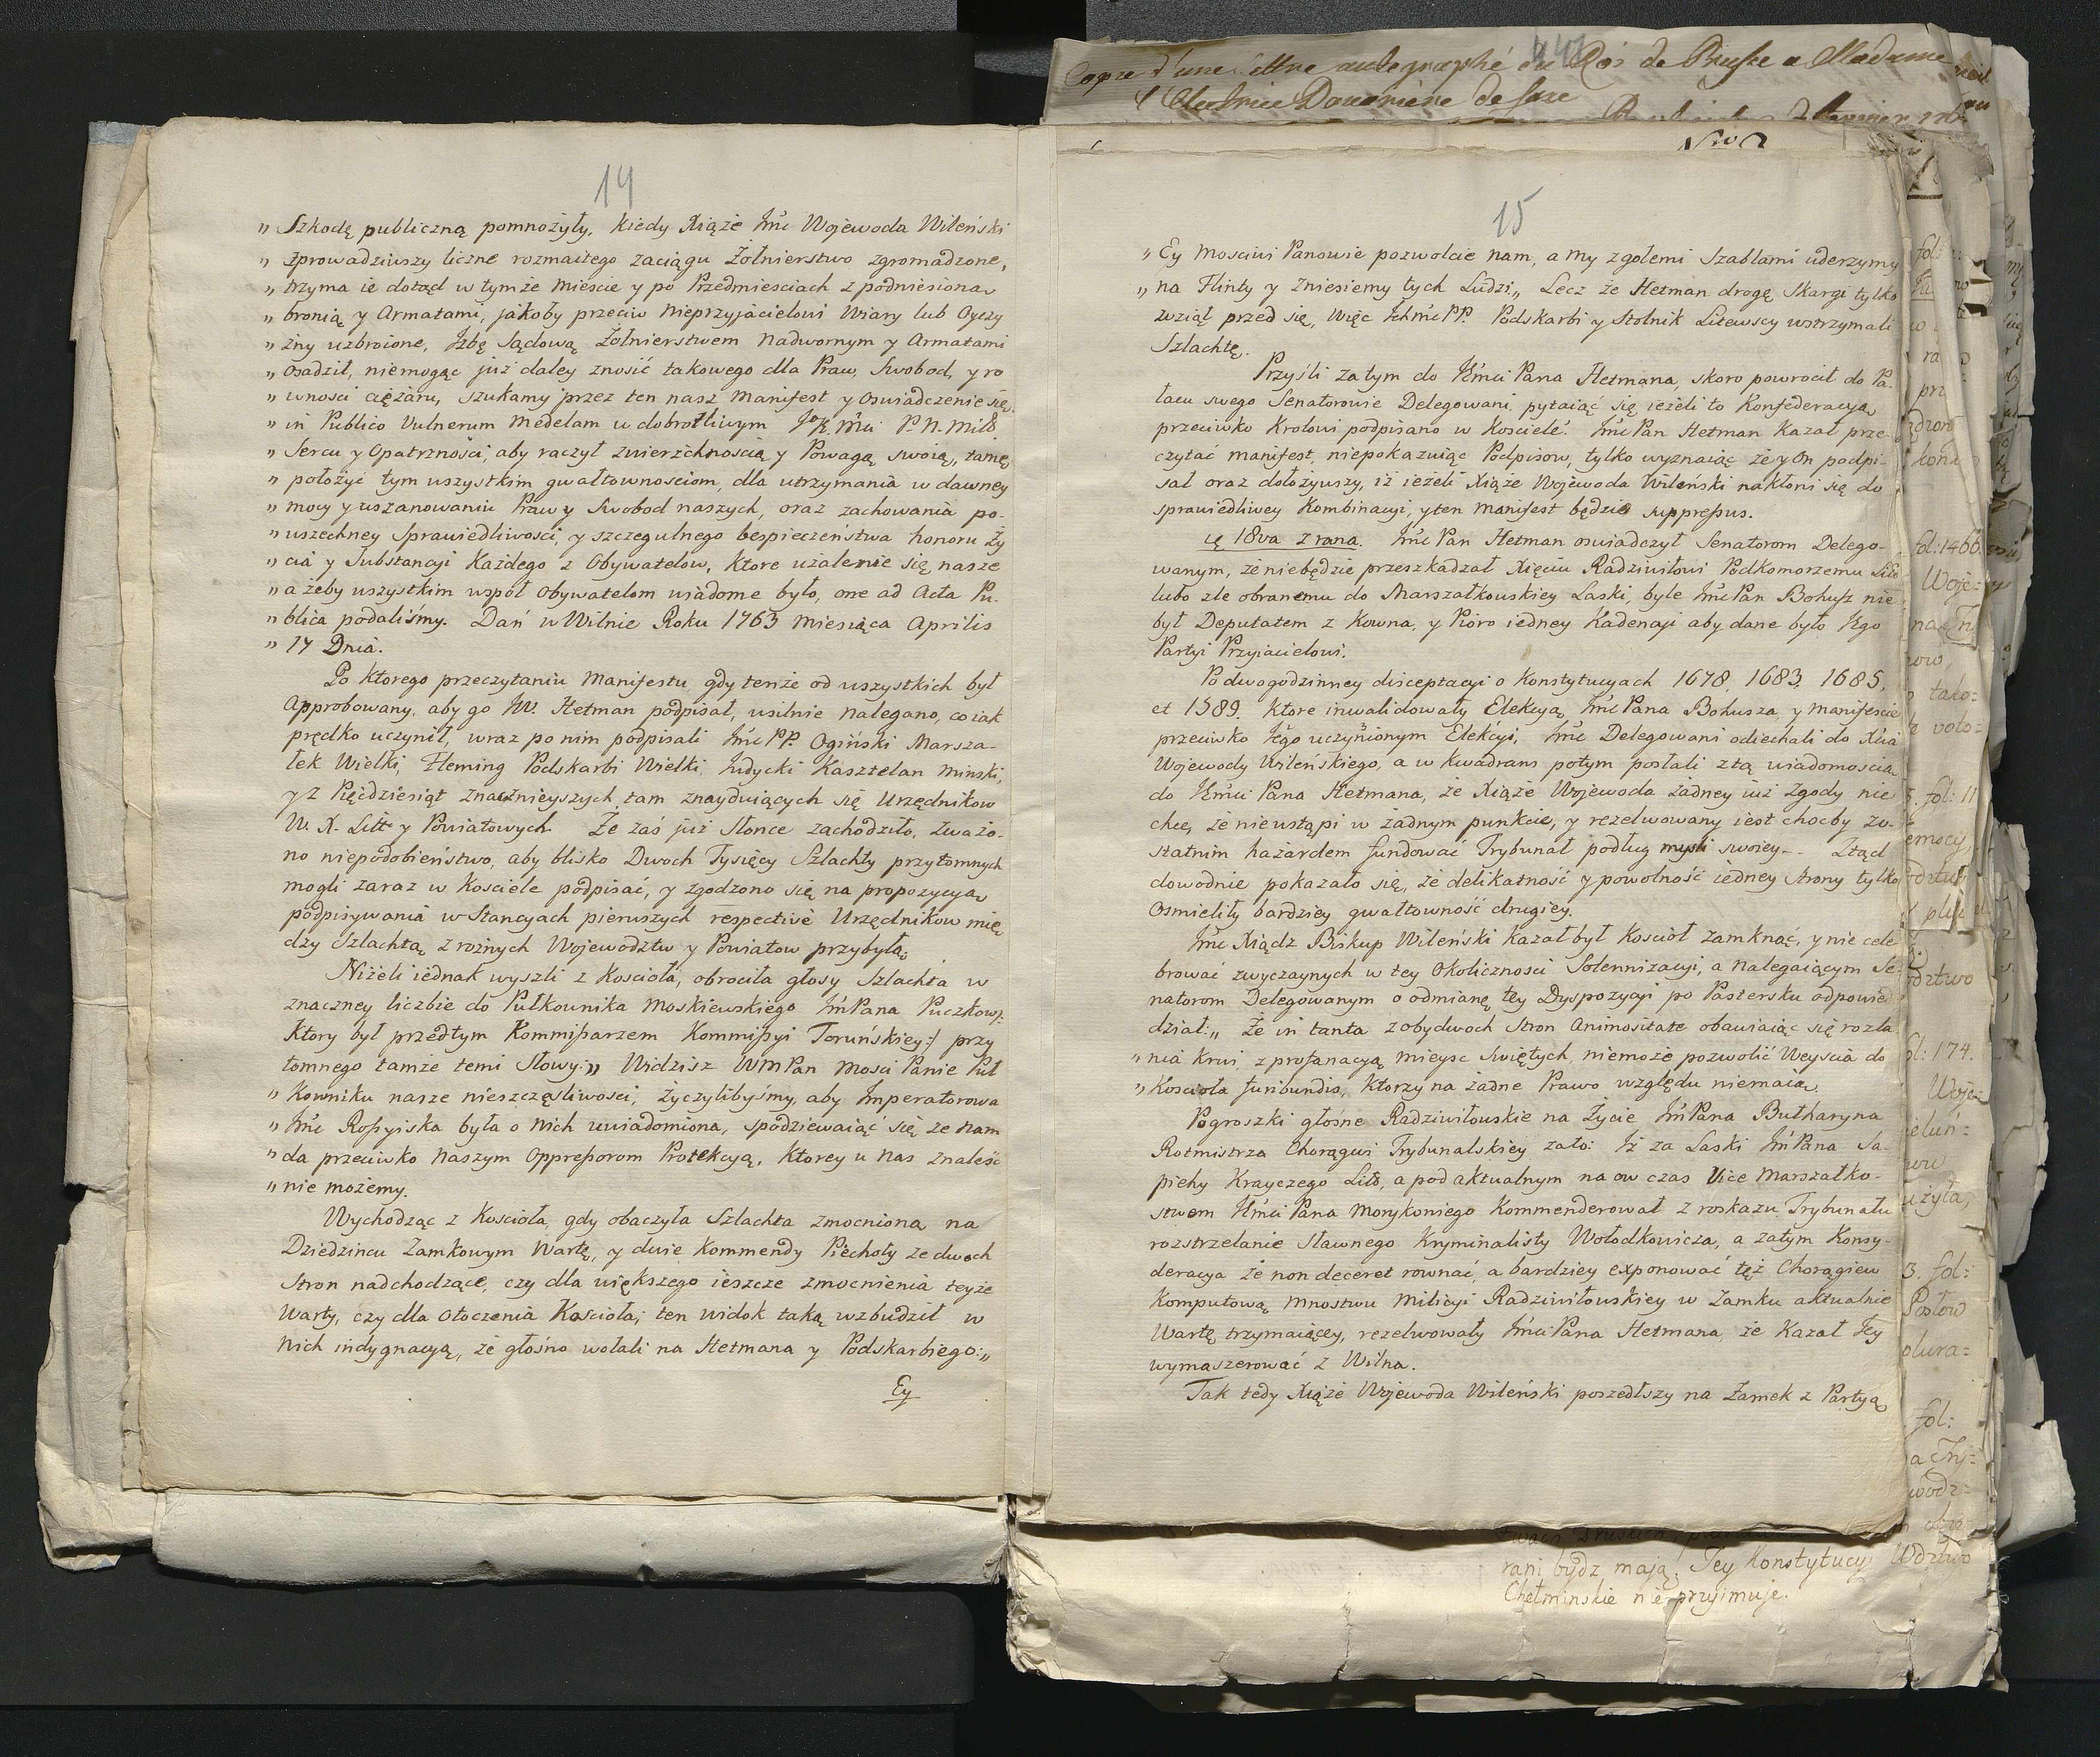 14
„ Szkodę publiczną pomnożyły, kiedy Xiąże Jmć Wojewoda Wileński
„ zprowadziwszy liczne rozmaitego zaciągu Żołnierstwo zgromadzone,
„ trzyma ie dotąd w tymże mieście y po Przedmiesciach z podniesioną
„ bronią y Armatami, jakoby przeciw Nieprzyjacielowi Wiary lub Oyczy
„ zny uzbroione, Jzbę Sądową Żołnierstwem Nadwornym y Armatami
„ osadził, niemogąc już daley znosić takowego dla Praw, Swobod, y ro
„ wnosci ciężaru, szukamy przez ten nasz Manifest y Oswiadczenie się
„ in Publico Vulnerum Medelam w dobrotliwym JK. Mci P. N. Miłł
„ Sercu y Opatrznosci, aby raczył zwierzchnością y Powagą swoią, tamę
„ położyć tym wszystkim gwałtownosciom, dla utrzymania w dawney
„ mocy y uszanowaniu Praw y Swobod naszych, oraz zachowania po-
„ wszechney Sprawiedliwosci, y szczegulnego bespieczeństwa honoru Ży
„ cia y Substancyi Każdego z Obywatelow, Ktore użalenie się nasze
„ a żeby wszystkim wspoł Obywatelom wiadome było, one ad Acta Pu-
„ blica podaliśmy. Dań w Wilnie Roku 1763 Miesiąca Aprilis
„ 17 Dnia.
Po Ktorego przeczytaniu Manifestu, gdy tenże od wszystkich był
Approbowany, aby go JW. Hetman podpisał, usilnie nalegano, co iak
prędko uczynił, wraz po nim podpisali JmćPP. Ogiński Marsza-
łek Wielki, Fleming Podskarbi Wielki, Judycki Kasztelan Minski,
y z Pięćdziesiąt znacznieyszych, tam znayduiących się Urzędnikow
W. X. Litt y Powiatowych. Że zaś już Słonce zachodziło, zważo-
no niepodobieństwo, aby blisko Dwoch Tysięcy Szlachty przytomnych
mogli zaraz w Kosciele podpisać, y zgodzono się na propozycyą
podpisywania w Stancyach pierwszych respectivè Urzędnikow mię
dzy Szlachtą z rożnych Wojewodztw y Powiatow przybyłą.
Niżeli iednak wyszli z Kościoła, obrociła głosy Szlachta w
znaczney liczbie do Pułkownika Moskiewskiego JmPana Puczkow:
Ktory był przedtym Kommissarzem Kommissyi Toruńskiey:/ przy
tomnego tamże temi Słowy: „ Widzisz WMPan Mosci Panie Puł
„ Kowniku nasze nieszczęsliwosci, życzylibyśmy, aby Jmperatorowa
„ Jmć Rossyiska była o nich uwiadomiona, spodziewaiąć się, że nam
„ da przeciwko Naszym Oppressorom Protekcyą, Ktorey u nas znaleść
„ nie możemy.
Wychodząc z Kościoła, gdy obaczyła Szlachta zmocniona na
Dziedzincu Zamkowym Wartę, y dwie Kommendy Piechoty ze dwoch
Stron nadchodzące, czy dla większego ieszcze zmocnienia teyże
Warty, czy dla Otoczenia Kościoła, ten widok taką wzbudził w
Nich indygnacyą, że głośno wołali na Hetmana y Podskarbiego: „
Ey
Copie d'une lettre autographé du Roi de Prusse a Madame
l'Electrice Douariere de Saxe
15
„ Ey Mosciwi Panowie pozwolcie nam, a My zgołemi Szablami uderzymy
„ na Flinty y zniesiemy tych Ludzi. „ Lecz że Hetman drogę Skargi tylko
wziął przed się, Więc IchmćPP. Podskarbi y Stolnik Litewscy wstrzymali
Szlachtę.
Przyśli za tym do JKmci Pana Hetmana, skoro powrocił do Pa-
łacu swego Senatorowie Delegowani, pytaiąć się ieżeli to Konfederacya
przeciwko Krolowi podpisano w Kosciele. JmćPan Hetman Kazał prze-
czytać Manifest, niepokazuiąc Podpisow, tylko wyznaiąc że y On podpi-
sał oraz dołożywszy, iż ieżeli Xiąże Wojewoda Wileński nakłoni się do
sprawiedliwey Kombinacyi, y ten Manifest będzie suppressus.
18va z rana. JmćPan Hetman oswiadczył Senatorom Delego-
wanym, że niebędzie przeszkadzał Xięciu Radziwiłowi Podkomorzemu Litt
lubo zle obranemu do Marszałkowskiey Laski, byle JmćPan Bohusz nie
był Deputatem z Kowna, y Pióro iedney Kadencyi aby dane było Jego
Partyi Przyiacielowi.
Po dwogodzinney disceptacyi o Konstytucyach 1678, 1683. 1685,
et 1589. Ktore inwalidowały Elekcyą JmćPana Bohusza, y Manifescie
przeciwko Jego uczynionym Elekcyi, Jmć Delegowani odiechali do Xcia
Wojewody Wileńskiego, a w Kwadrans potym posłali z tą wiadomoscią
do JKmci Pana Hetmana, że Xiąże Wojewoda żadney iuż Zgody nie
chce, że nieustąpi w żadnym punkcie, y rezelwowany iest choćby zo-
statnim hazardem fundować Trybunał podług mysli swoiey. Ztąd
dowodnie pokazało się, że delikatność y powolność iedney Strony tylko
Osmieliły bardziey gwałtowność drugiey.
Jmć Xiądz Biskup Wileński Kazał był Kościoł zamknąć, y nie cele
brować zwyczaynych w tey Okoliczności Solennizacyi, a nalegaiącym Se-
natorom Delegowanym o odmianę tey Dyspozycyi po Pastersku odpowie-
dział: „ Że in tanta z obydwoch Stron Animositate obawiaiąc się rozla
„ nia Krwi, z profanacyą mieysc Swiętych, niemoże pozwolić Weyscia do
„ Kościoła furibundis, Ktorzy na żadne Prawo względu niemaią.
Pogroszki głośne Radziwiłowskie na życie JmPana Butharyna
Rotmistrza Chorągwi Trybunalskiey zato: Jż za Laski JmPana Sa-
piehy Krayczego Litt, a pod aktualnym na ow czas Vice Marszałko-
stwem JKmci Pana Morykoniego Kommenderował z roskazu Trybunału
rozstrzelanie Sławnego Kryminalisty Wołodkowicza, a zatym Konsy-
deracya że non deceret rownać, a bardziey exponować też Chorągiew
Komputową mnostwu Milicyi Radziwiłowskiey w Zamku aktualnie
Wartę trzymaiącey, rezelwowały JmciPana Hetmana, że Kazał Jey
wymaszerować z Wilna.
Tak tedy Xiąże Wojewoda Wileński poszedłszy na Zamek z Partyą
fol: 1466.
Woje-
tako-
fol: 11
fol: 174.
Woje-
użyła,
3. fol:
Posłow
fol:
rani bydz mają. Tey Konstytucyi Wdztwo
Chełminskie nie przyimuje.